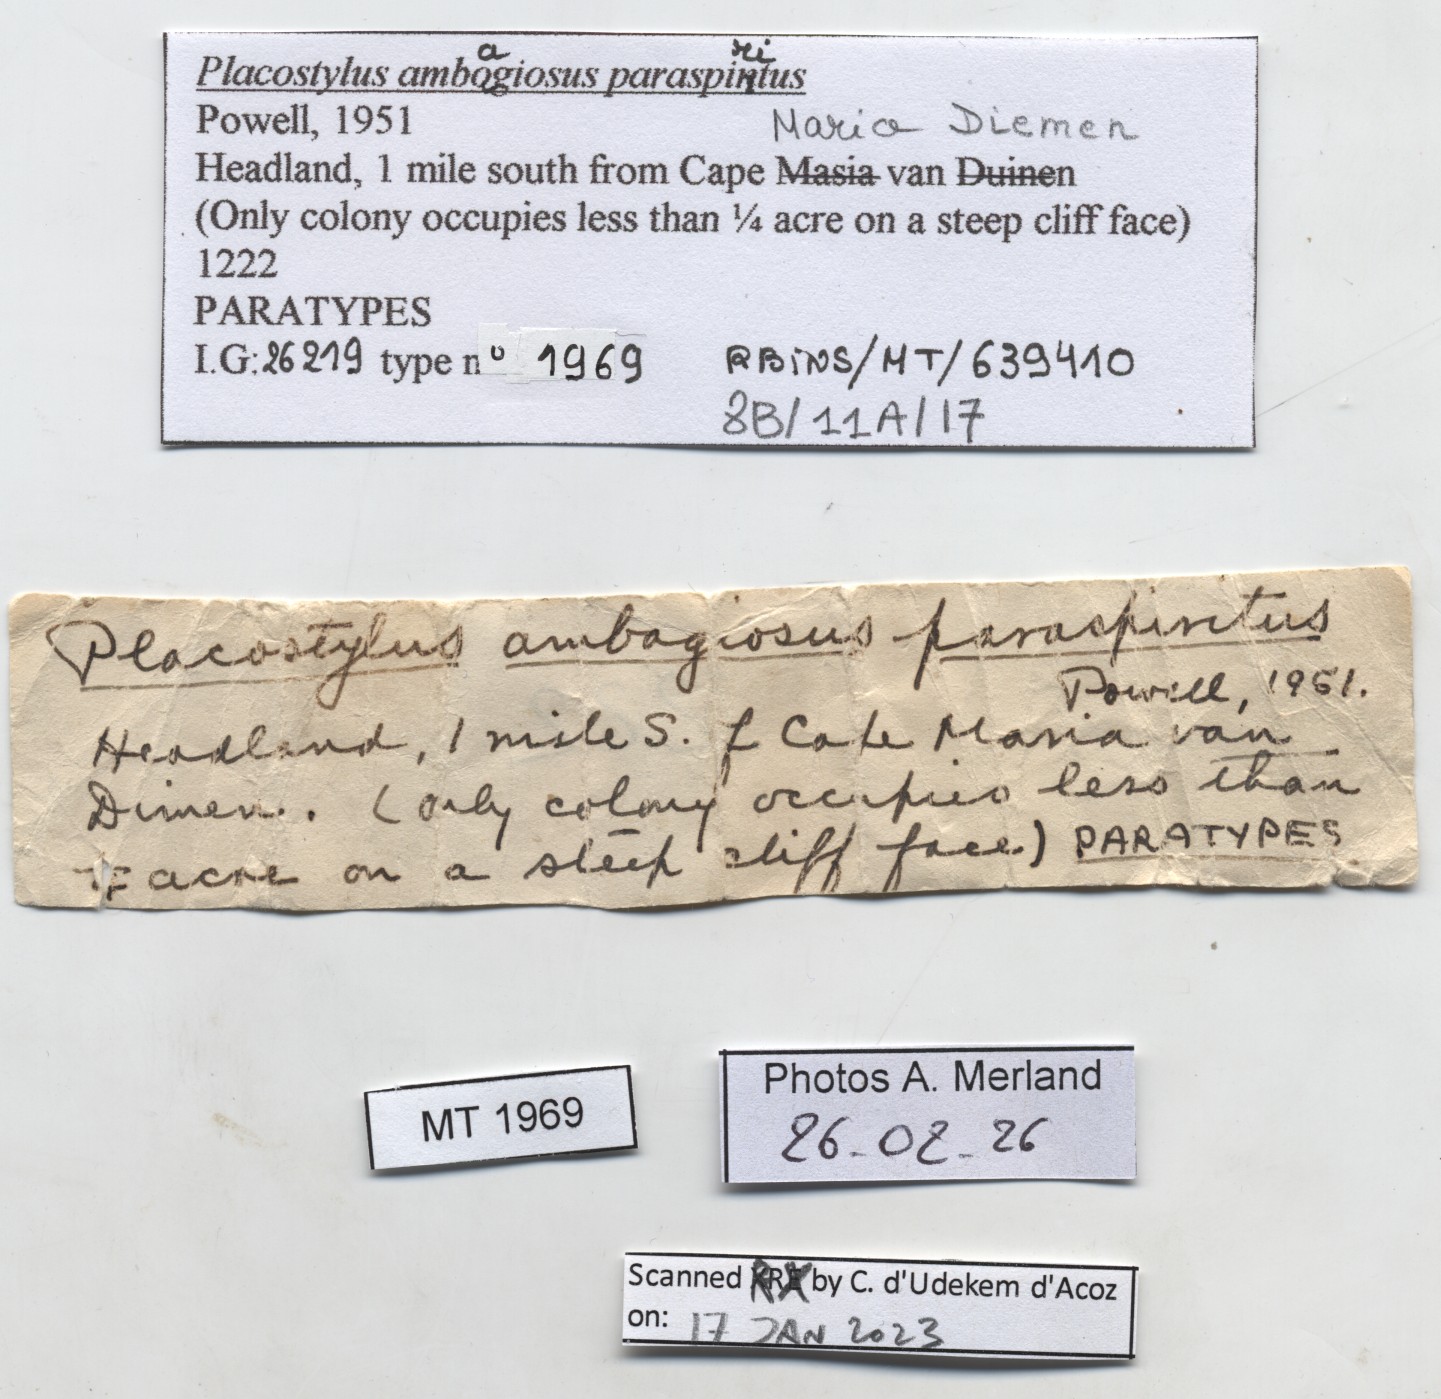 Placostylus ambogiosus paraspiritus
a
ri
Powell, 1951
Maria Diemen
Headland, 1 mile south from Cape Masia van Duinen
(Only colony occupies less than ¼ acre on a steep cliff face)
1222
PARATYPES
I.G: 26219 type nº 1969 RBINS/MT/639410
8B/11A/17
Placostylus ambagiosus paraspiritus
Powell, 1951.
Headland, 1 mile S. of Cape Maria van
Dimen. (Only colony occupies less than
acre on a steep cliff face) PARATYPES
MT 1969
Photos A. Merland
26-02-26
Scanned by C. d'Udekem d'Acoz
on: 17 JAN 2023